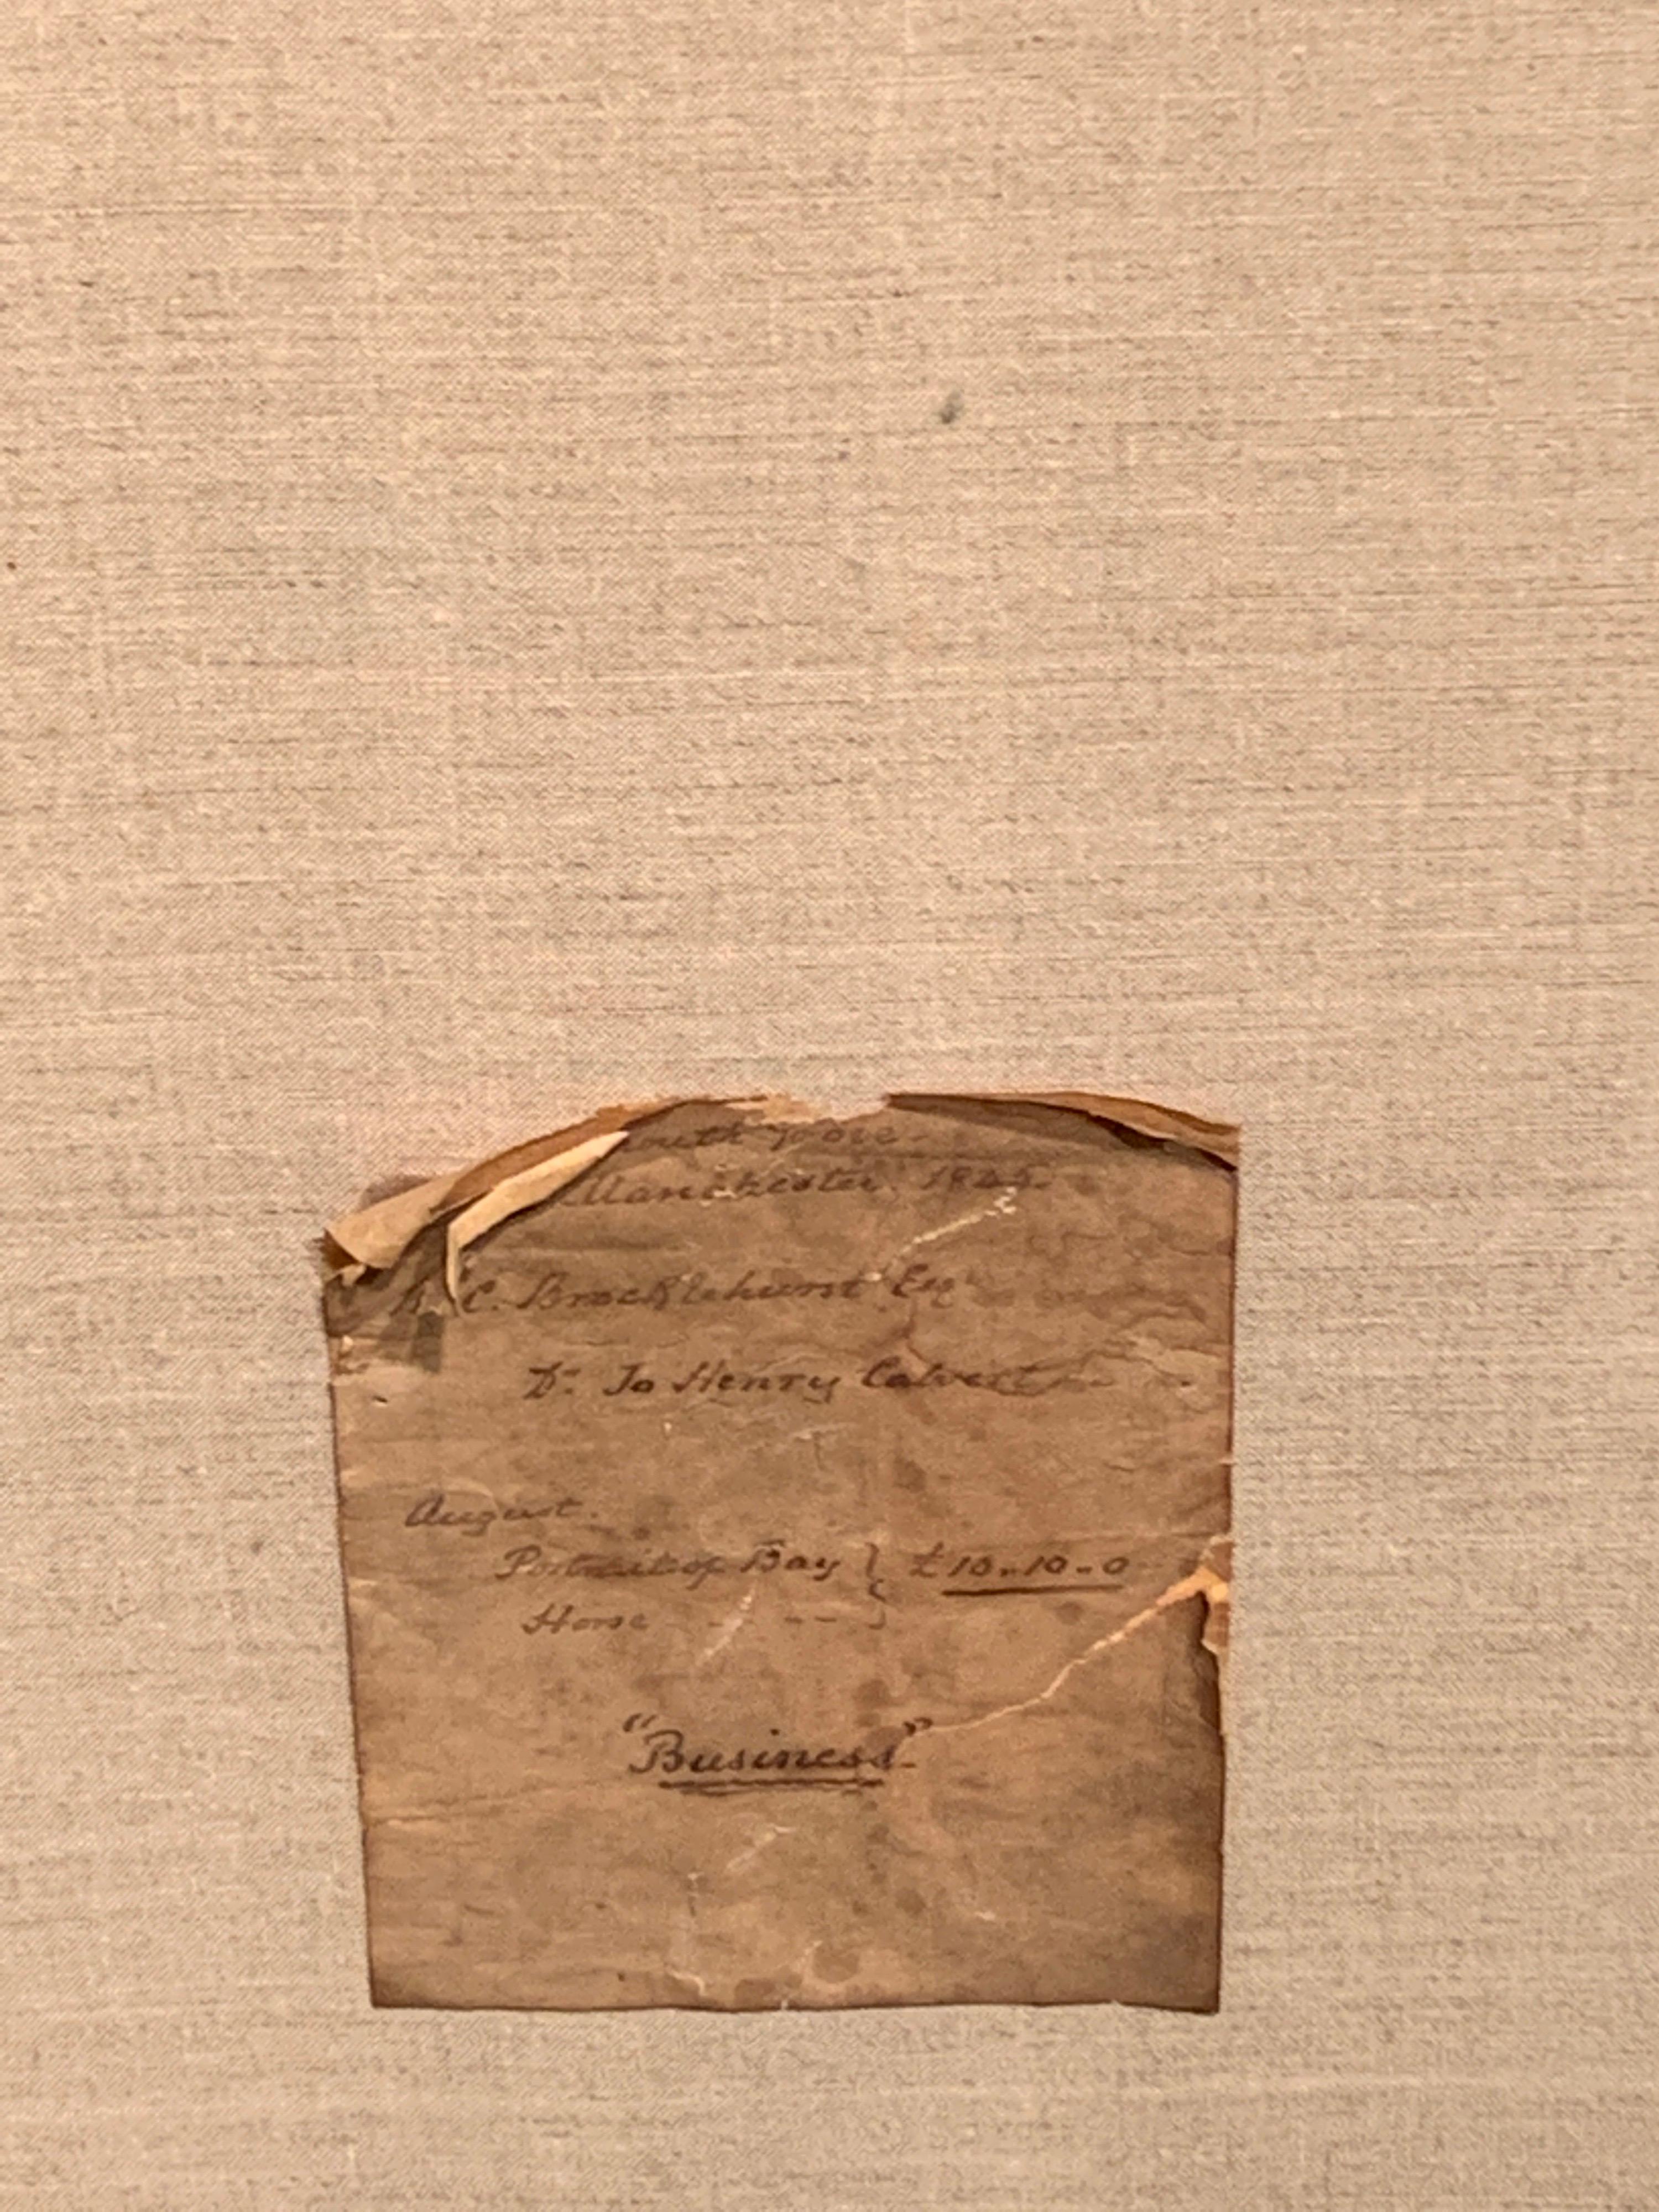 Manchester. 1845.
C. Brocklehurst Esq
Dr. To Henry Calvert
August.
Portrait of Bay } £10..10..0
Horse - - -
"Business"